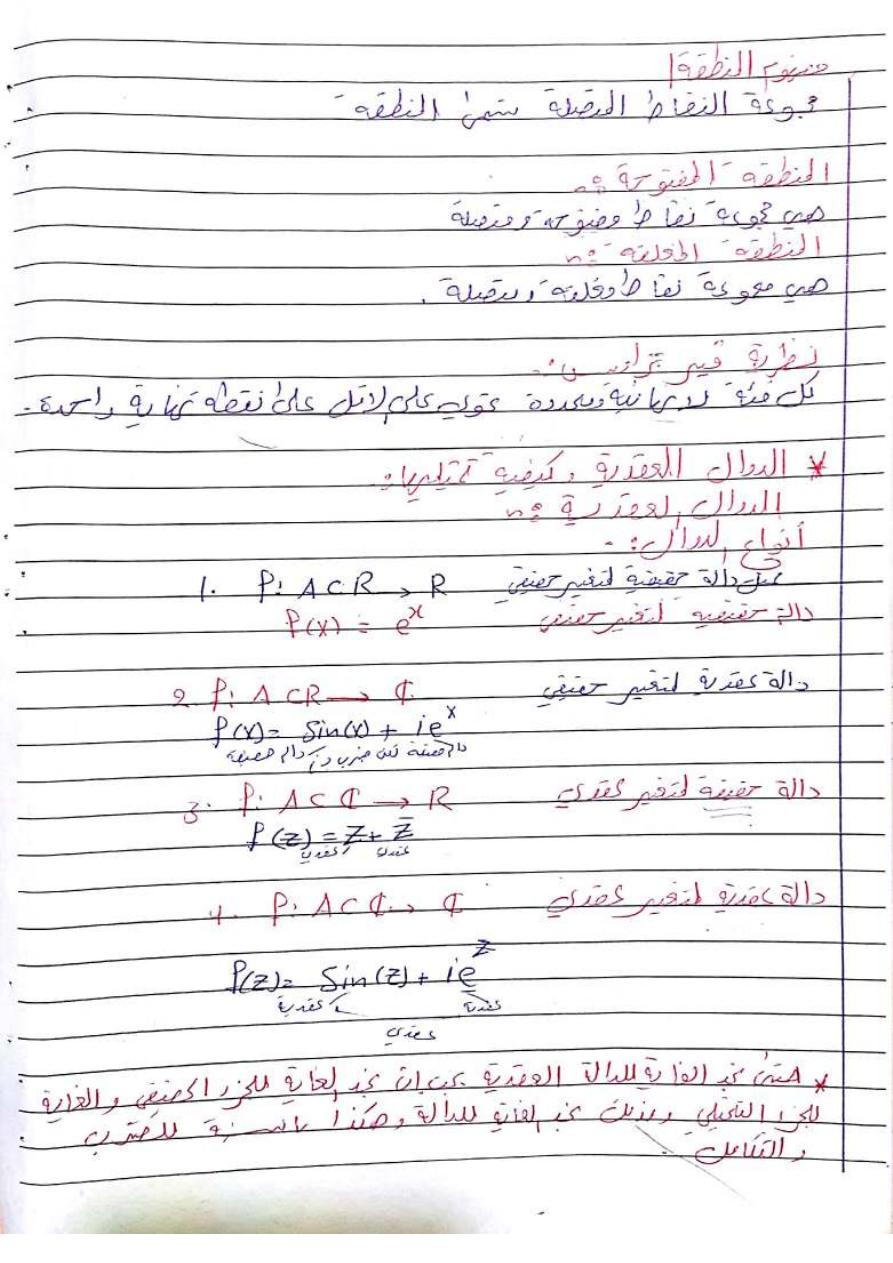 مفهوم المنطقة
مجموعة النقاط المتصلة تسمى المنطقة
المنطقة المفتوحة :-
هي مجموعة نقاط مفتوحة ومتصلة
المنطقة المغلقة :-
هي مجموعة نقاط مغلقة ومتصلة .
نظرية فير تراس :-
كل فئة لا نهائية ومحددة تحوي على الاقل على نقطة نهاية واحدة .
* الدوال العقدية وكيفية تمثيلها :
الدوال العقدية :-
أنواع الدوال : -
1. f: A ⊂ R → R دالة حقيقية لمتغير حقيقي
f(x) = e^x دالة حقيقية لمتغير حقيقي
2. f: A ⊂ R → ℂ دالة عقدية لمتغير حقيقي
f(x) = Sin(x) + i e^x
3. f: A ⊂ ℂ → R دالة حقيقية لمتغير عقدي
f(z) = z + z̄
عقدي عقدي
4. f: A ⊂ ℂ → ℂ دالة عقدية لمتغير عقدي
f(z) = Sin(z) + i e^z
عقدية عقدية
عقدي
* حتى نجد الغاية للدالة العقدية يجب ان نجد الغاية للجزء الحقيقي والغاية
للجزء التخيلي وبذلك نجد الغاية للدالة وهكذا بالنسبة للضرب
والتكامل .